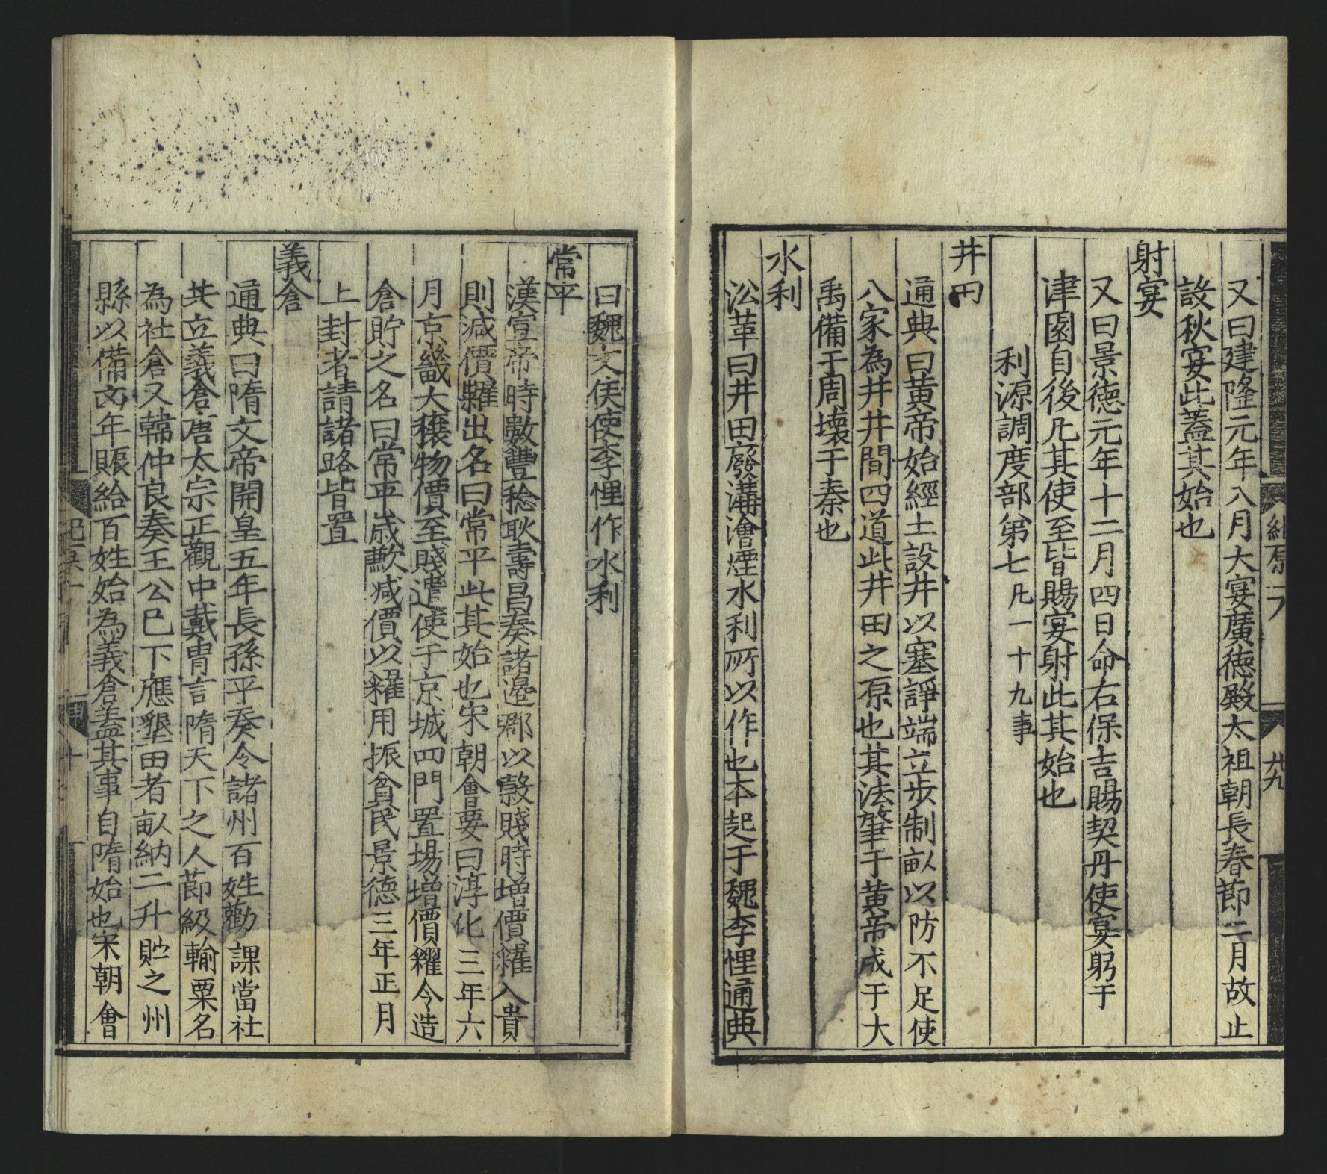 又曰建隆元年八月大宴廣德殿太祖朝長春節二月故止
設秋宴此蓋其始也
射宴
又曰景德元年十二月四日命右保吉賜契丹使宴躬于
津園自後凡其使至皆賜宴射此其始也
利源調度部第七凡一十九事
井田
通典曰黄帝始經土設井以塞諍端立步制畝以防不足使
八家為井井間四道此井田之原也其法肇于黄帝成于大
禹備于周壞于秦也
水利
沿革曰井田廢溝澮堙水利所以作也本起于魏李悝通典
曰魏文侯使李悝作水利
常平
漢宣帝時數豐稔耿壽昌奏諸邊郡以穀賤時增價糴入貴
則減價糶出名曰常平此其始也宋朝會要曰淳化三年六
月京畿大穰物價至賤遣使于京城四門置場增價糴令造
倉貯之名曰常平歲歉減價以糶用振貧民景德三年正月
上封者請諸路皆置
義倉
通典曰隋文帝開皇五年長孫平奏令諸州百姓勸課當社
共立義倉唐太宗正觀中戴胄言隋天下之人節級輸粟名
為社倉又韓仲良奏王公已下應墾田者畝納二升貯之州
縣以備凶年賑給百姓始為義倉蓋其事自隋始也宋朝會